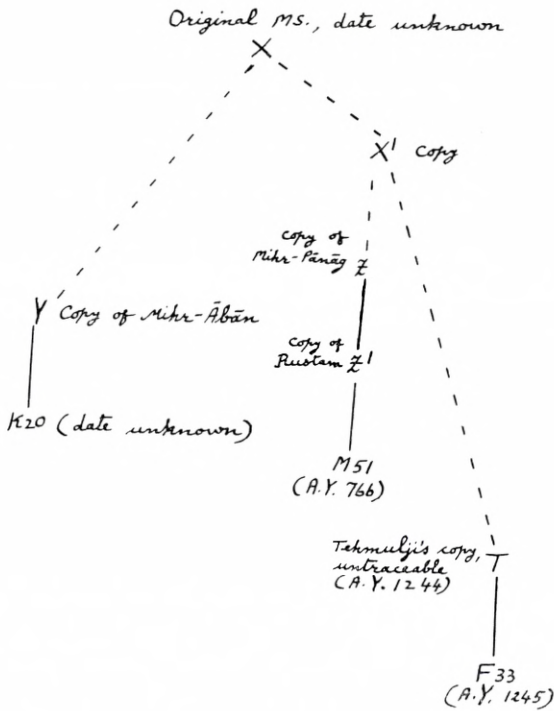 Original MS., date unknown
X
X' Copy
Copy of
Mihr-Pānāg Z
Y Copy of Mihr-Ābān
Copy of
Rustam Z'
K20 (date unknown)
M51
(A.Y. 766)
Tehmulji's copy,
untraceable T
(A.Y. 1244)
F33
(A.Y. 1245)